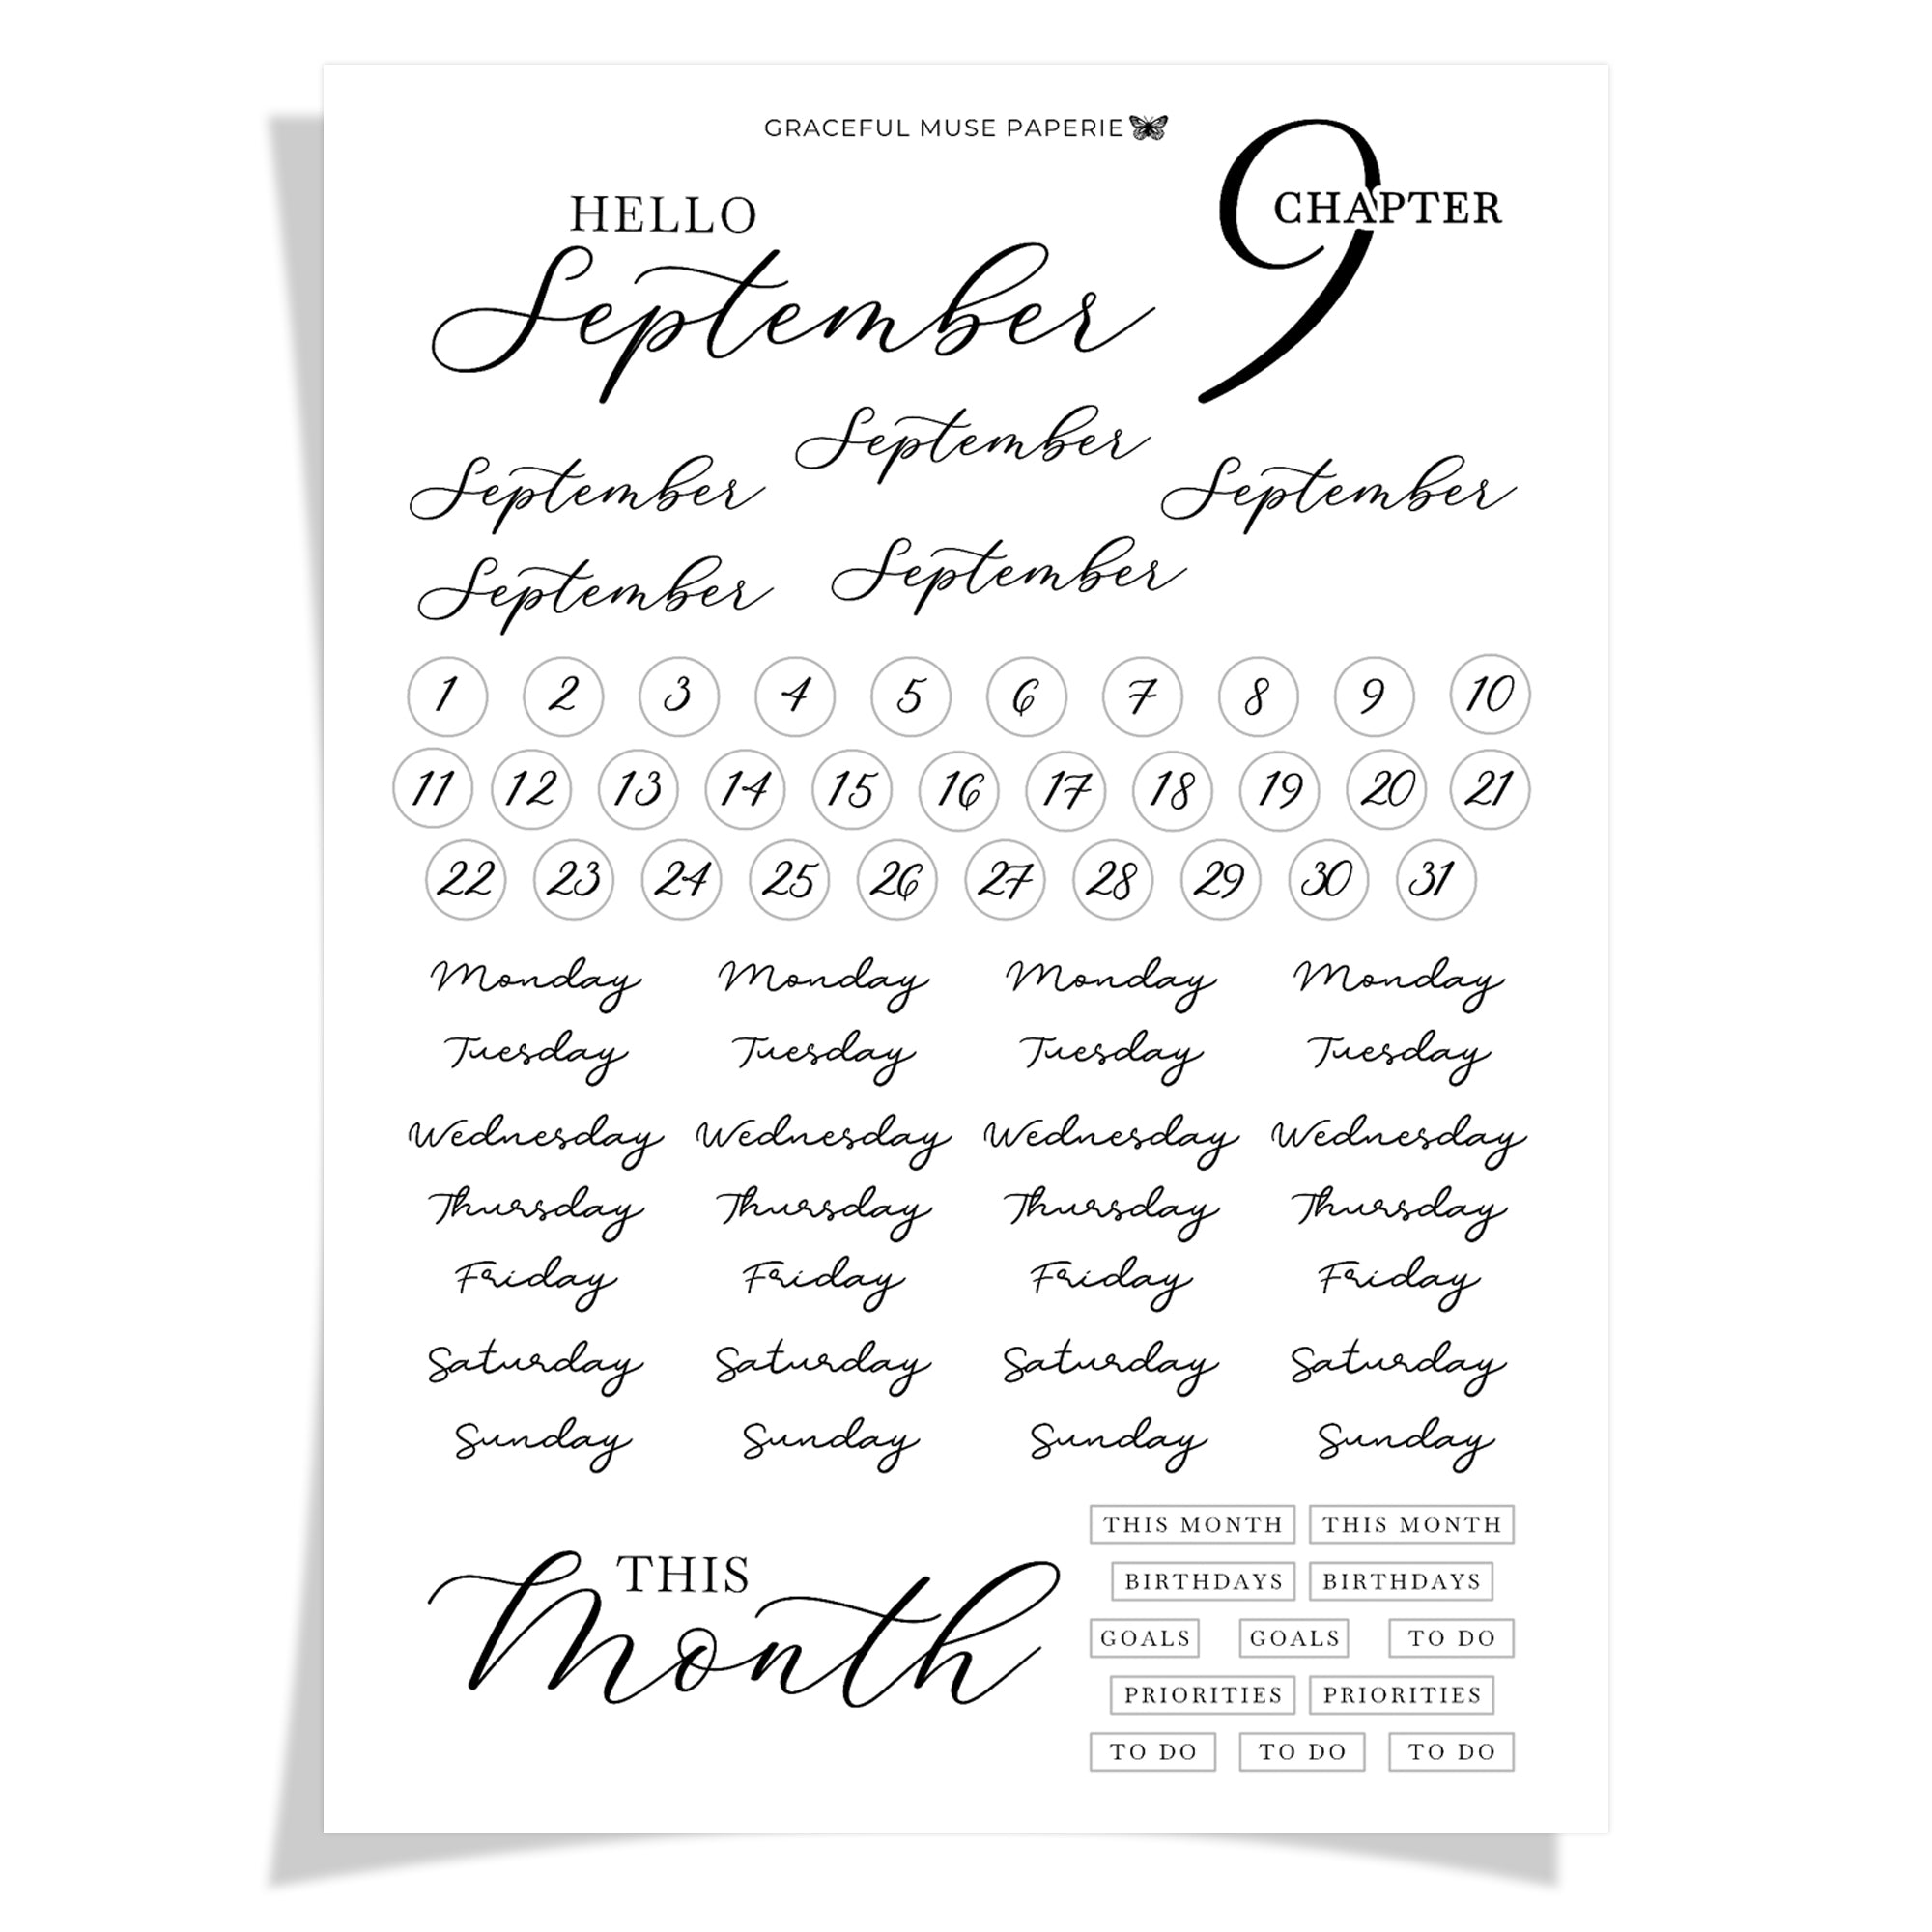 GRACEFUL MUSE PAPERIE
HELLO
September
9
CHAPTER
September
September September
September September
1 2 3 4 5 6 7 8 9 10
11 12 13 14 15 16 17 18 19 20 21
22 23 24 25 26 27 28 29 30 31
Monday Monday Monday Monday
Tuesday Tuesday Tuesday Tuesday
Wednesday Wednesday Wednesday Wednesday
Thursday Thursday Thursday Thursday
Friday Friday Friday Friday
Saturday Saturday Saturday Saturday
Sunday Sunday Sunday Sunday
THIS
Month
THIS MONTH THIS MONTH
BIRTHDAYS BIRTHDAYS
GOALS GOALS TO DO
PRIORITIES PRIORITIES
TO DO TO DO TO DO